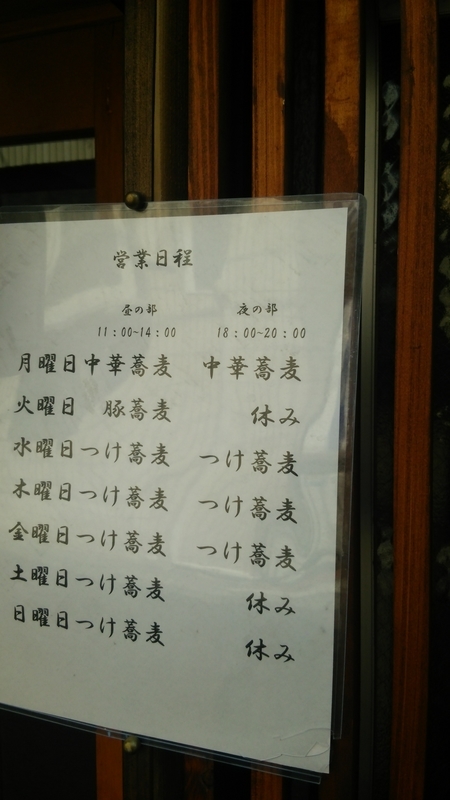 営業日程
昼の部 夜の部
11:00~14:00 18:00~20:00
月曜日 中華蕎麦 中華蕎麦
火曜日 豚蕎麦 休み
水曜日 つけ蕎麦 つけ蕎麦
木曜日 つけ蕎麦 つけ蕎麦
金曜日 つけ蕎麦 つけ蕎麦
土曜日 つけ蕎麦 休み
日曜日 つけ蕎麦 休み